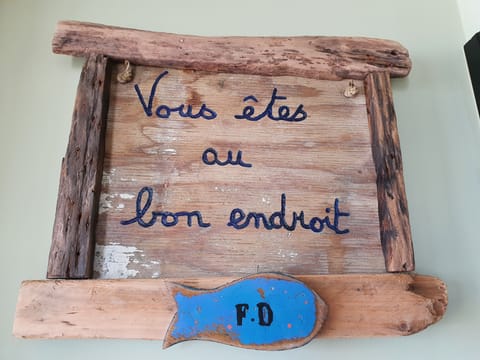 Vous êtes
au
bon endroit
F.D